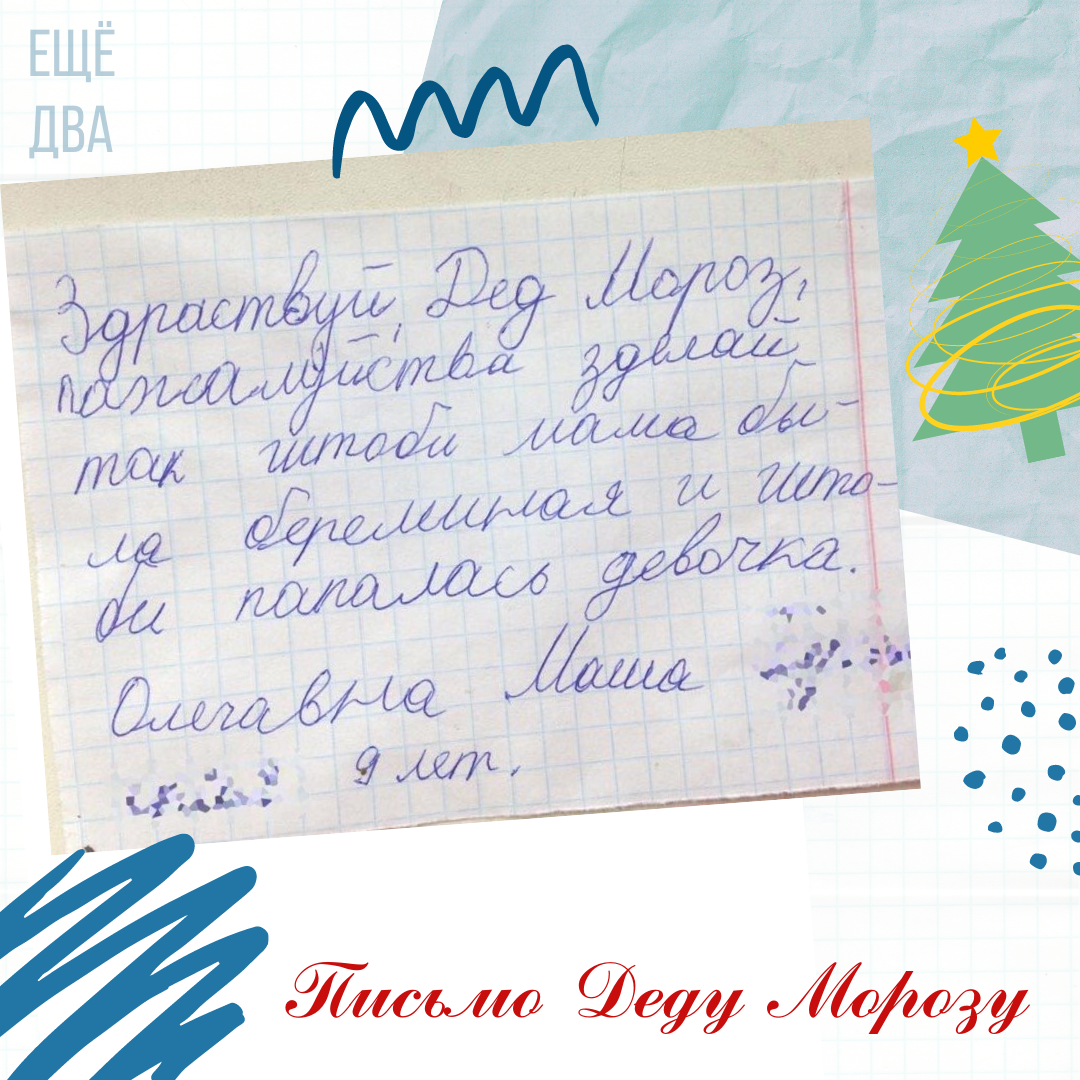 ЕЩЁ
ДВА
Здраствуй, Дед Мороз,
пажалуйства зделай
так штоби мама бы-
ла береминая и што-
би папалась девочка.
Олегавна Маша
9 лет.
Письмо Деду Морозу